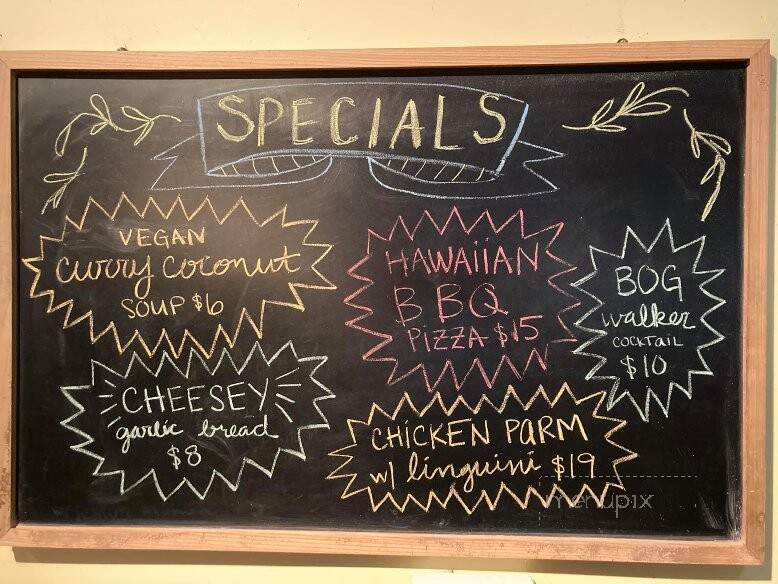 SPECIALS
VEGAN
curry coconut
SOUP $6
HAWAIIAN
BBQ
PIZZA $15
BOG
walker
COCKTAIL
$10
CHEESEY
garlic bread
$8
CHICKEN PARM
w/ linguini $19
menupix